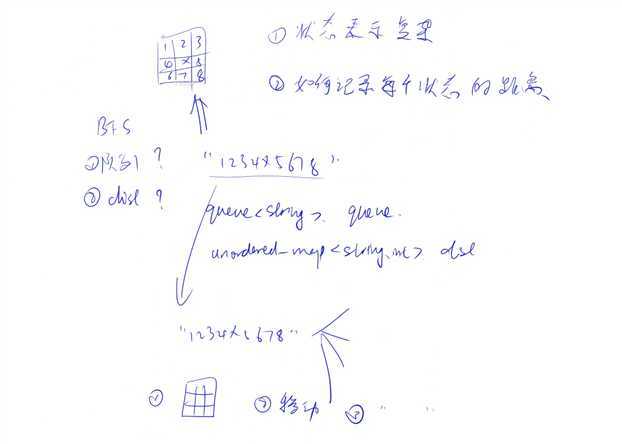 1 2 3
4 x 5
6 7 8
① 状态表示复杂
② 如何记录每个状态的距离
BFS
①队列?
"1234x5678"
② dist ?
queue<string> queue.
unordered_map<string, int> dist
"1234x5678"
①
② 移动
③ " "